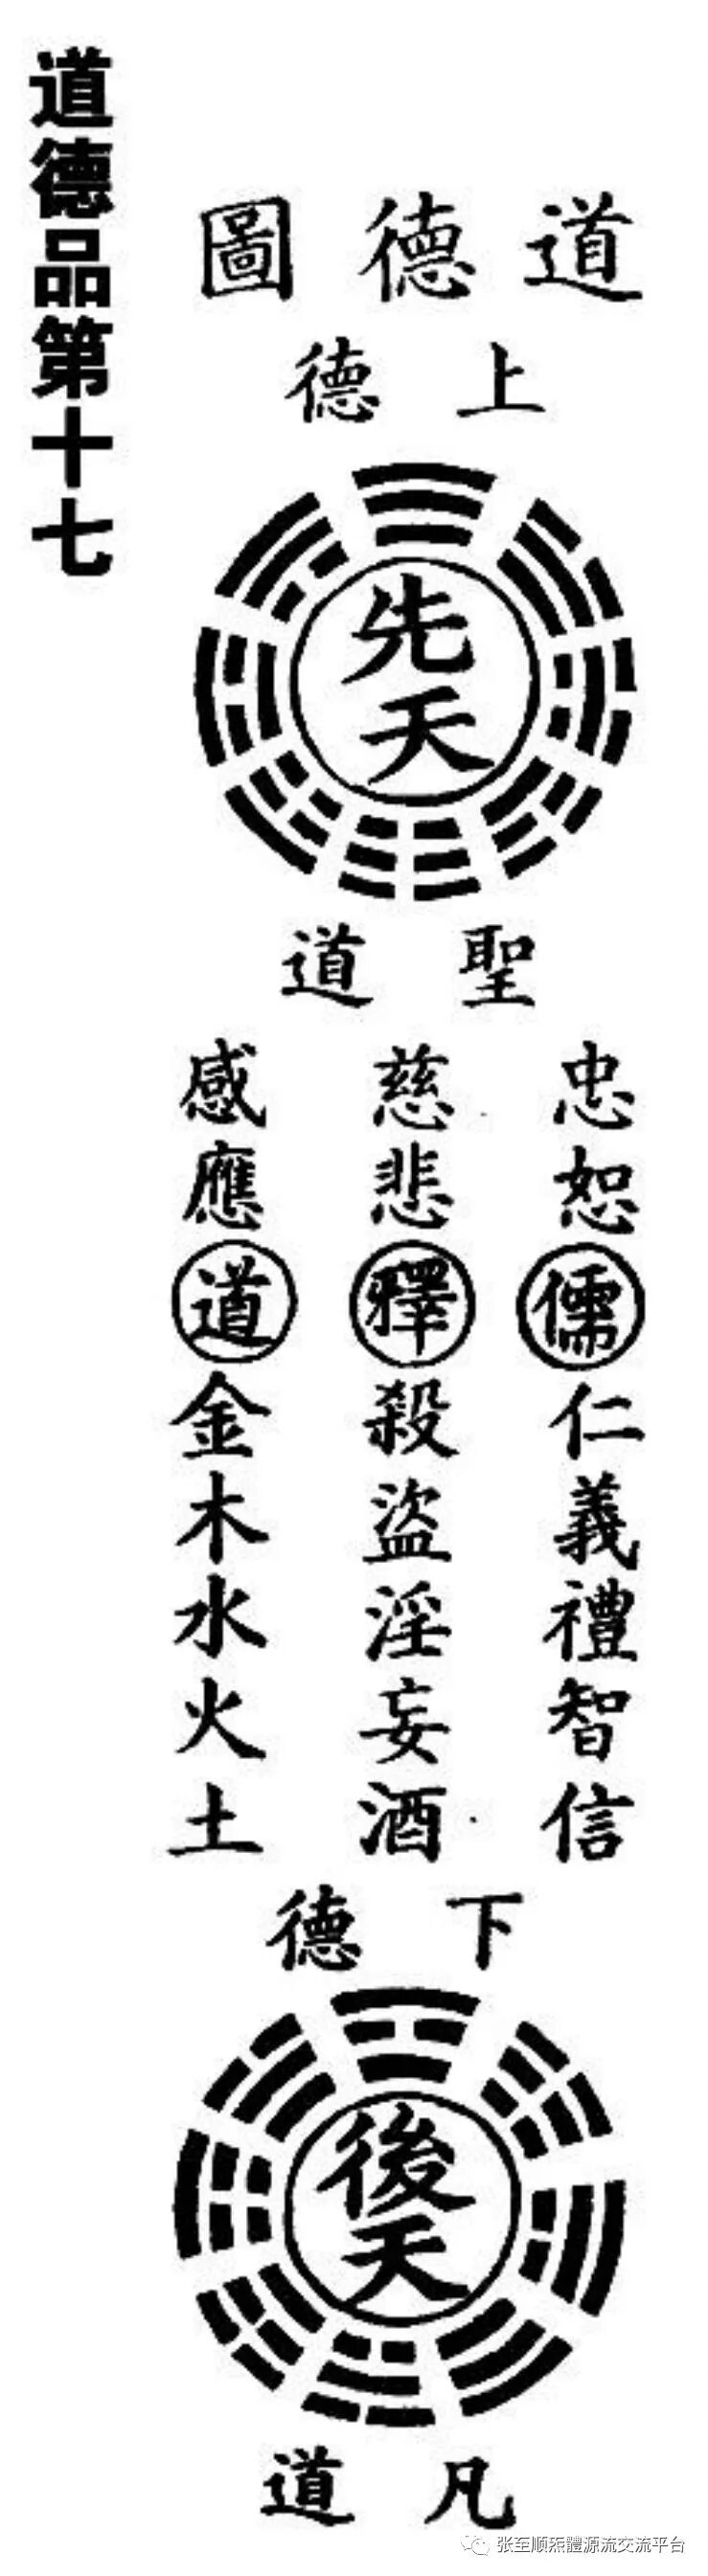 道德品第十七
道德圖
上德
先天
聖道
忠恕儒仁義禮智信
慈悲釋殺盜淫妄酒
感應道金木水火土
下德
後天
凡道
张至顺炁體源流交流平台